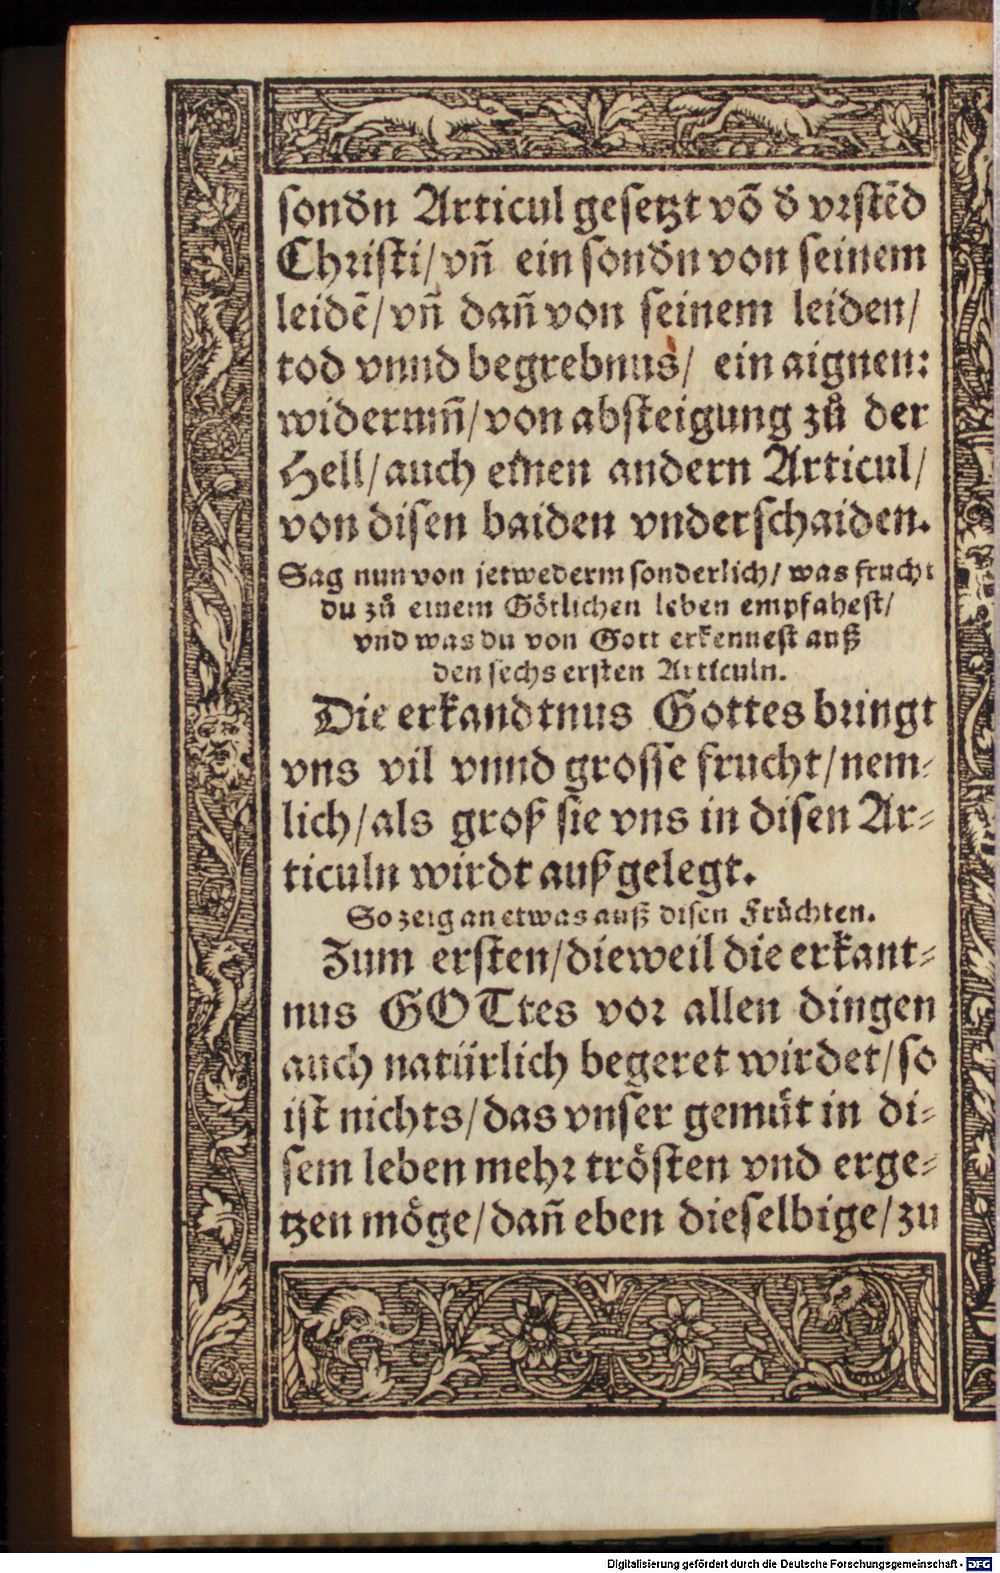 sondn̄ Articul gesetzt võ d̄ vrstēd
Christi/ vñ ein sondn̄ von seinem
leidē/ vñ dañ von seinem leiden/
tod vnnd begrebnus/ ein aignen:
widerum̃/ von absteigung zů der
Hell/ auch einen andern Articul/
von disen baiden vnderschaiden.
Sag nun von jetwederm sonderlich/ was frucht
du zů einem Götlichen leben empfahest/
vnd was du von Gott erkennest auß
den sechs ersten Articuln.
Die erkandtnus Gottes bringt
vns vil vnnd grosse frucht/ nem-
lich/ als groß sie vns in disen Ar-
ticuln wirdt außgelegt.
So zeig an etwas auß disen Früchten.
Zum ersten/ dieweil die erkant-
nus GOTtes vor allen dingen
auch natürlich begeret wirdet/ so
ist nichts/ das vnser gemüt in di-
sem leben mehr trösten vnd erge-
tzen möge/ dañ eben dieselbige/ zu
Digitalisierung gefördert durch die Deutsche Forschungsgemeinschaft - DFG